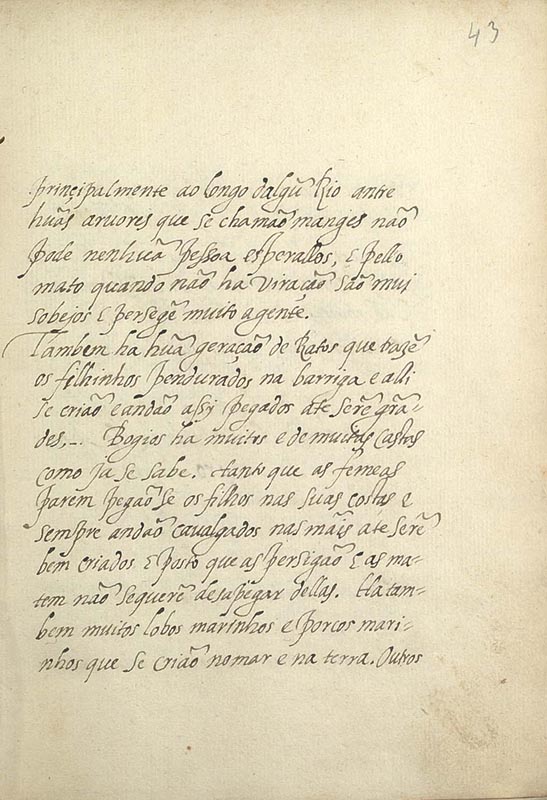 43
prinçipalmente ao longo dalgũ Rio antre
huãs aruores que se chamão manges não
pode nenhuã pessoa esperallos, E pello
mato quando não ha viração são mui
sobejos E persegẽ muito a gente.
Tambem ha huã geração de Ratos que trazẽ
os filhinhos pendurados na barriga e alli
se crião e andão assy pegados ate serẽ gran-
des,-. Bogios ha muitos e de muitas castas
como ja se sabe. tanto que as femeas
parem pegaõ se os filhos nas suas costas e
sempre andão caualgados nas mãis ate serẽ
bem criados E posto que as persigão E as ma-
tem não se querẽ desapegar dellas. Ha tam-
bem muitos lobos marinhos e porcos mari-
nhos que se crião no mar e na terra. Outros